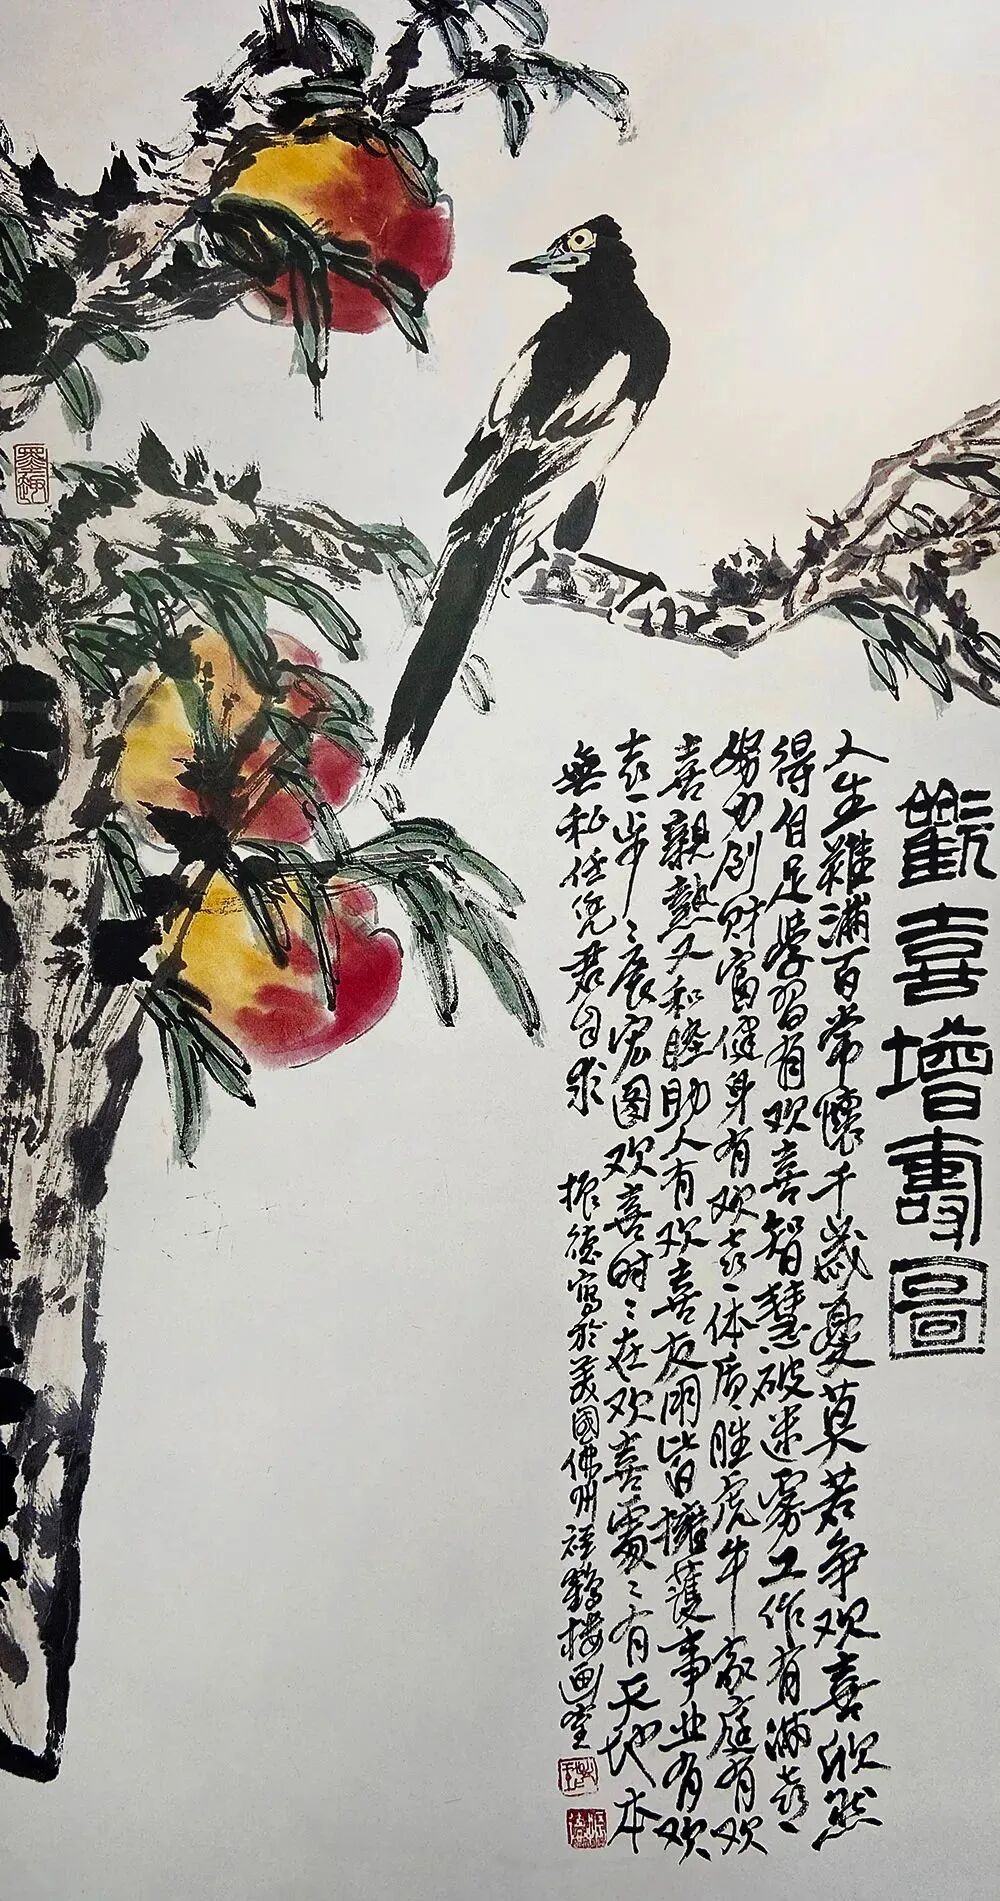 歡喜增壽圖
人生難滿百常懷千歲憂莫若争欢喜欣然
得自足學習有欢喜智慧破迷雾工作有满喜
努力创财富健身有欢喜体质胜虎牛家庭有欢
喜親熱又和睦助人有欢喜友朋皆擁護事业有欢
喜步〻展宏图欢喜时〻在欢喜處〻有天地本
無私任凭君自求 振德寫於美國佛州祥鶴楼画室
墨趣